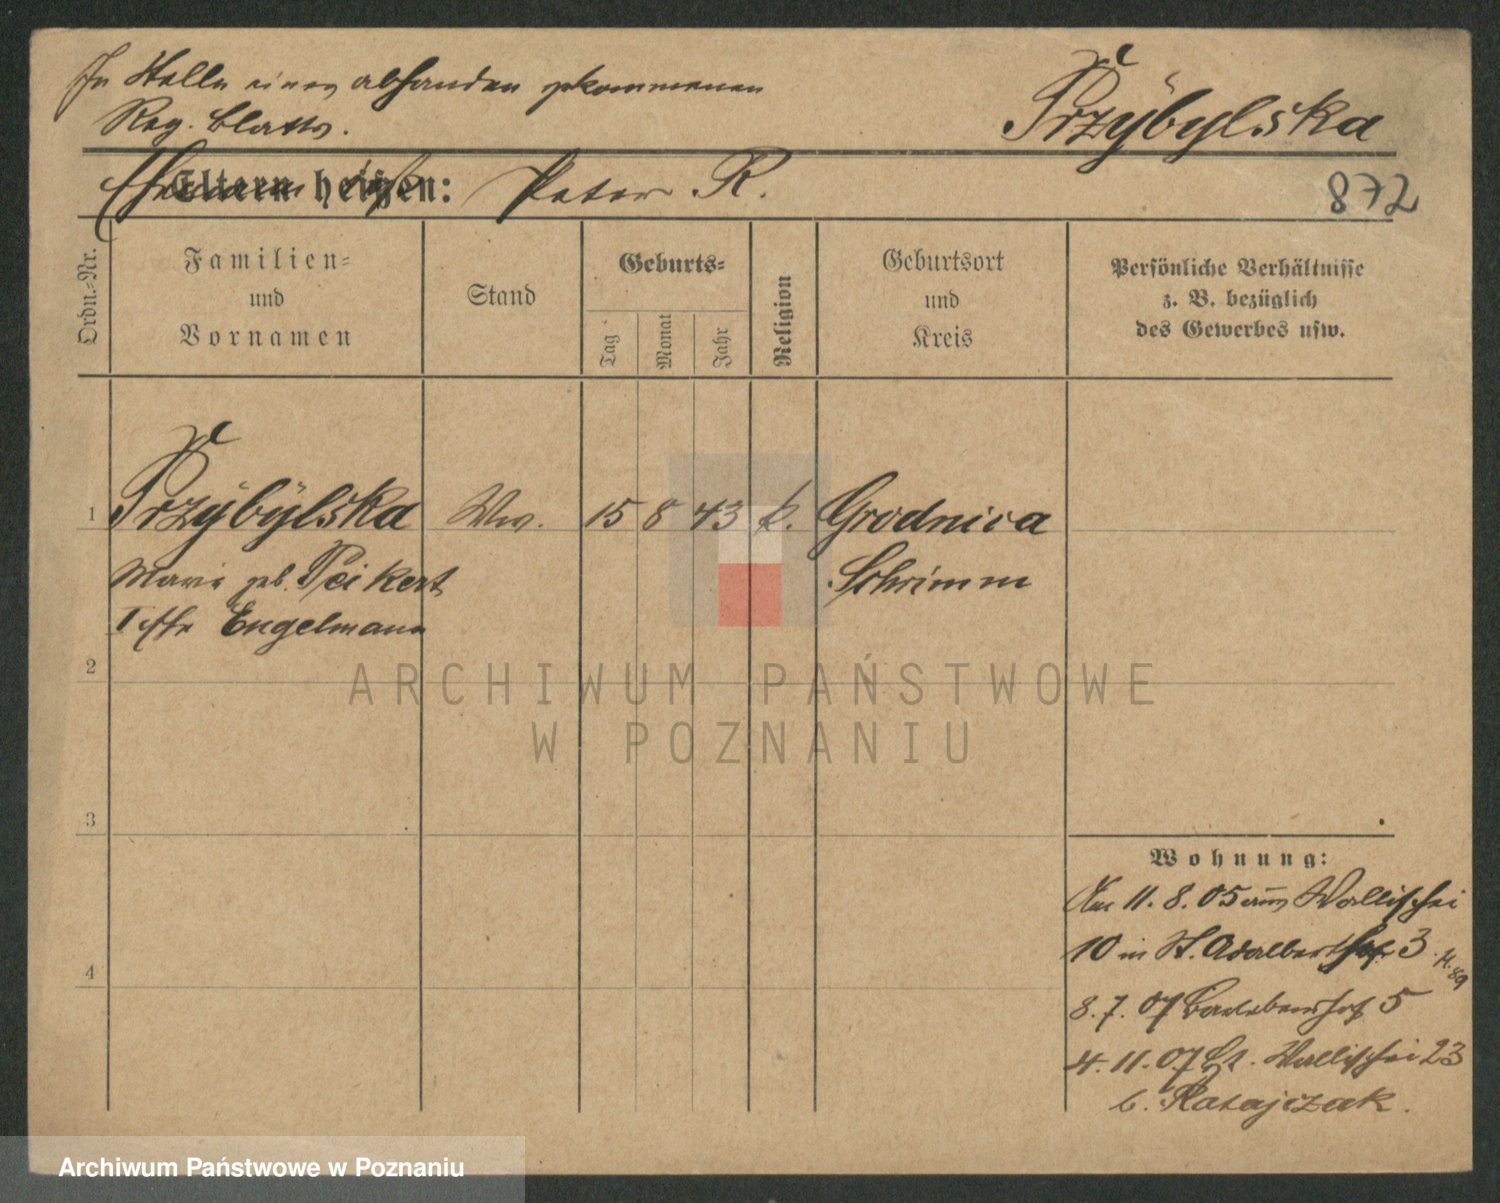 In Stelle eines abhanden gekommenen
Reg. Blatts.
Przybylska
Eltern heißen: Peter R.
872
Ordn.-Nr.
Familien-
und
Vornamen
Stand
Geburts-
Tag
Monat
Jahr
Religion
Geburtsort
und
Kreis
Persönliche Verhältnisse
z. B. bezüglich
des Gewerbes usw.
1 Przybylska Ww. 15 8 43 k. Grodnica
Marie geb. Peikert Schrimm
Engelmann
2
3
4
ARCHIWUM PAŃSTWOWE
W POZNANIU
Wohnung:
11.8.05 aus Wallischei
10 in St. Adalbertstr. 3
8.7.07 5
4.11.07 Wallischei 23
b. Ratajczak.
Archiwum Państwowe w Poznaniu